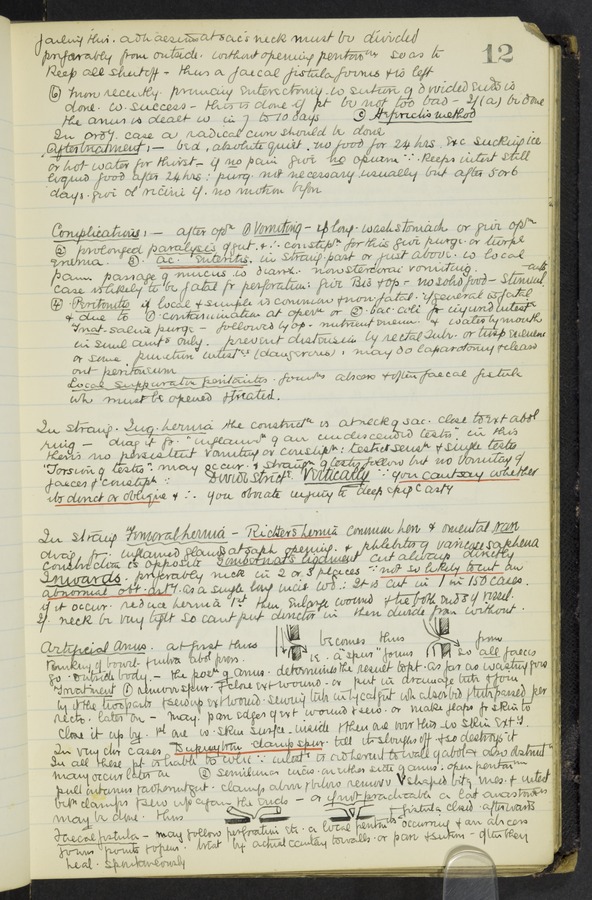 failing this. adhaesions at sac's neck must be divided
12
preferably from outside. without opening periton^m so as to
Keep all shut off - thus a faecal fistula forms & is left
⑥ more recently. primary Enterectomy. & suture of divided ends is
done. w. success - this is done if pt be not too bad - If (a) be done
the anus is dealt w. in 7 to 10 days ③ Helferich's method
In ord^y. case a radical cure should be done
Aftertreatment: - bed, absolute quiet. no food for 24 hrs. Exc sucking ice
or hot water for thirst - if no pain give no opium ∵ Keeps intest still
liquid food after 24 hrs: purg. not necessary usually but after 5 or 6
days. give ol ricini if. no motion before
Complications: - after op^n ① Vomiting - if long. wash stomach or give op^m
② prolonged paralysis of gut. & ∴ constip^n for this give purge. or turpe
enema. ③. ac. Enteritis. in strang. part or just above. w local
pain. passage of mucus w diarr. non stercoral vomiting.
case is likely to be fatal fr perforation. give Bis & op - no solid food - Stimul
④ Peritonitis if local & simple is common & non fatal. if general is fatal
& due to ① contamination at oper^n or ② bac. coli fr injured intest^e
Treat. saline purge - followed by op - nutrient enem. & water by mouth
in small am^ts only. prevent distension by rectal tube. or turp enema
or some. puncture intest^e (dangerous) : may do laparotomy & clean
out peritoneum
Local suppurative peritonitis. forms abscess & often faecal fistula
wh must be opened & treated.
In strang. Ing. hernia the constrict^n is at neck of sac. close to ext abd^l
ring - diag it fr. "inflam^n of an undescended testis" in this
there is no persistent vomiting or constip^n: testic sens^n & single testis
"Torsion of testis" may occur. & strang^n of testis follows but no vomiting of
faeces & constip^n: Divide Strict^e. Vertically ∵ you cant say whether
its direct or oblique & ∴ you obviate injury to deep epig art^y
In strang Femoral hernia - Richter's hernia common here & omental rare
diag. fr. inflamed glands at saph opening. & phlebitis of varicose saphena
constriction is opposite Gimbernat's ligament cut always directly
Inwards. preferably nick in 2 or 3 places ∵ not so likely to cut an
abnormal obt. art^y. as a single long incis w^d. ∴ It is cut in 1 in 150 cases.
if it occur. reduce hernia 1st then Enlarge wound & tie both ends of vessel.
If neck be very tight so cant put director in then divide from without.
Artificial Anus. at first thus becomes thus from
kinking of bowel & intra abd press. ie. a "spur" forms so all faeces
go outside body. - the pos^n of anus. determines the result to pt. as far as wasting goes
Treatment ① remove spur. & close ext wound. or put in drainage tube & join
recto. later on - may. pare edges of ext wound & sew. or make flaps fr skin to
close it up by. 1st are w skin surface inside & then are over this w skin ext^y.
In very chr cases Dupuytren clamp spur. till it sloughs off & so destroys it
In all these pt is liable to colic ∵ intest is adherent to wall of abd & also obstruct^n
may occur later on ② semilunar incis. on either side of anus. open periton^m
pull intenus to adherent gut. clamp above & below remove V shaped bit of mes. & intest
betw clamps & sew up again the ends - or if not practicable a lat anastomosis
may be done. thus - fistula closed. afterwards
Faecal fistula - may follow perforation etc. a local periton^tis occurring & an abscess
forms points & opens. treat by actual cautery to walls. or pare & suture - often they
heal. spontaneously